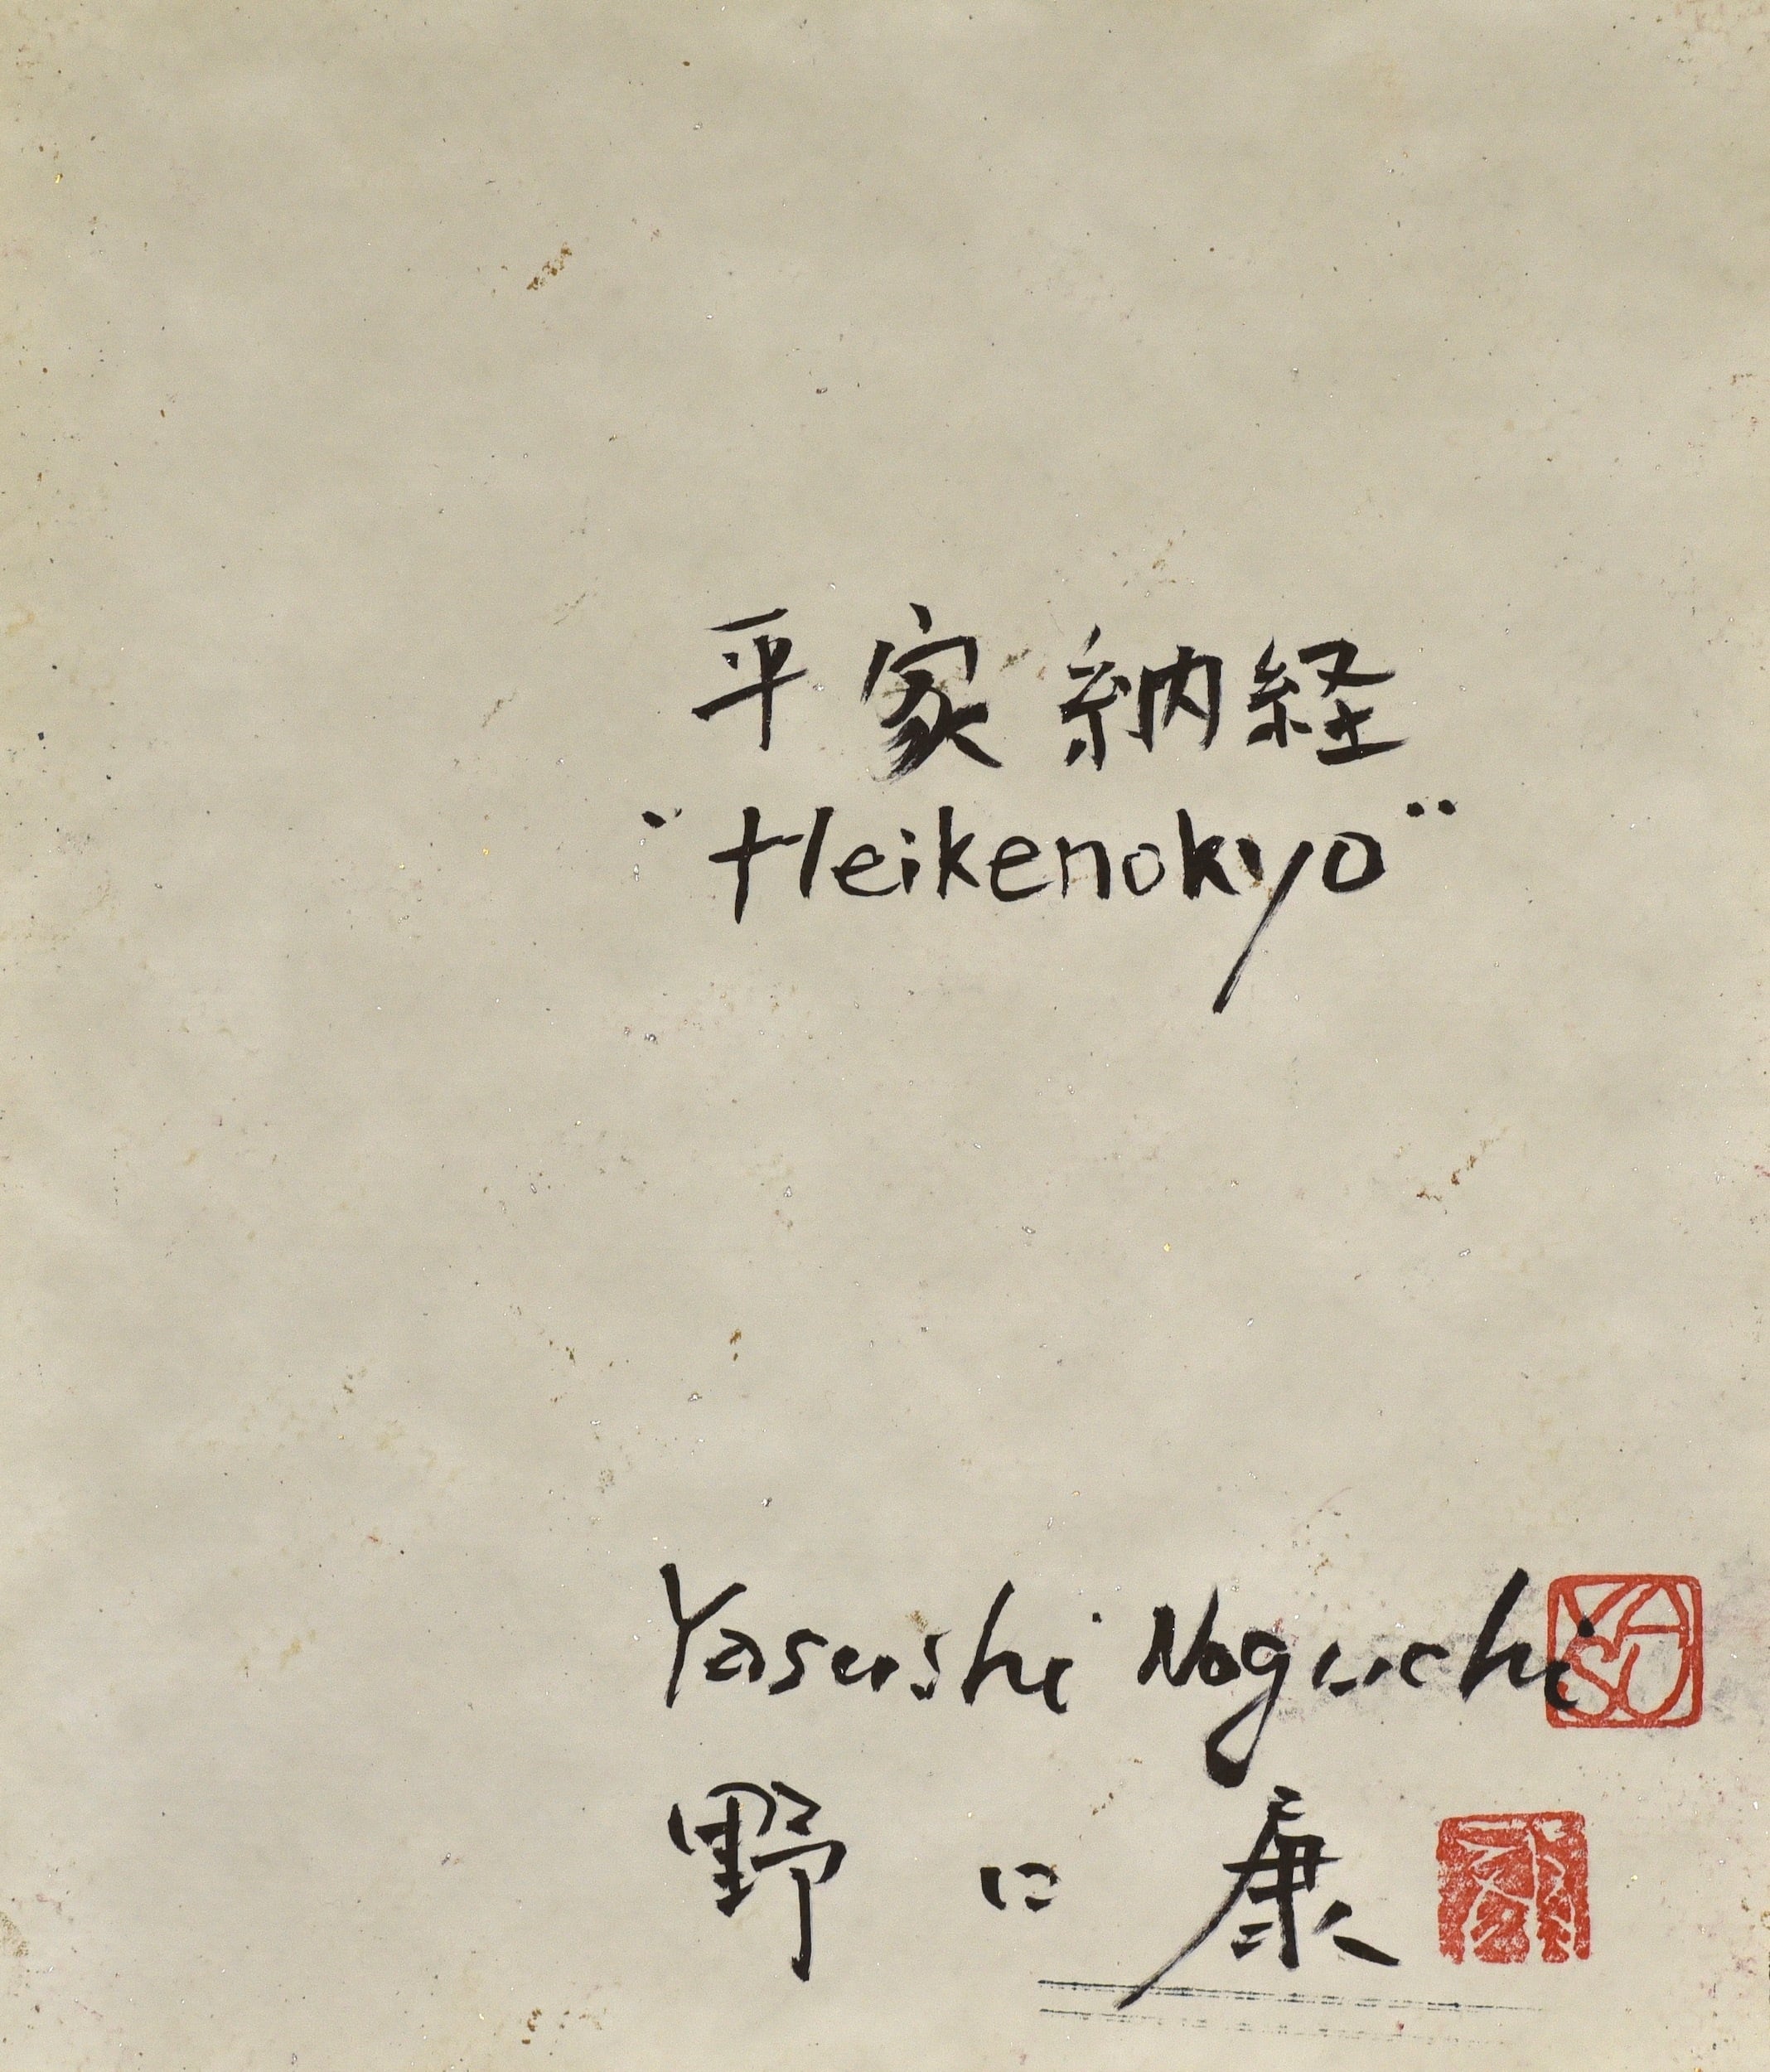 平家納経
"Heikenokyo"
Yasushi Noguchi
YASU
野口 康